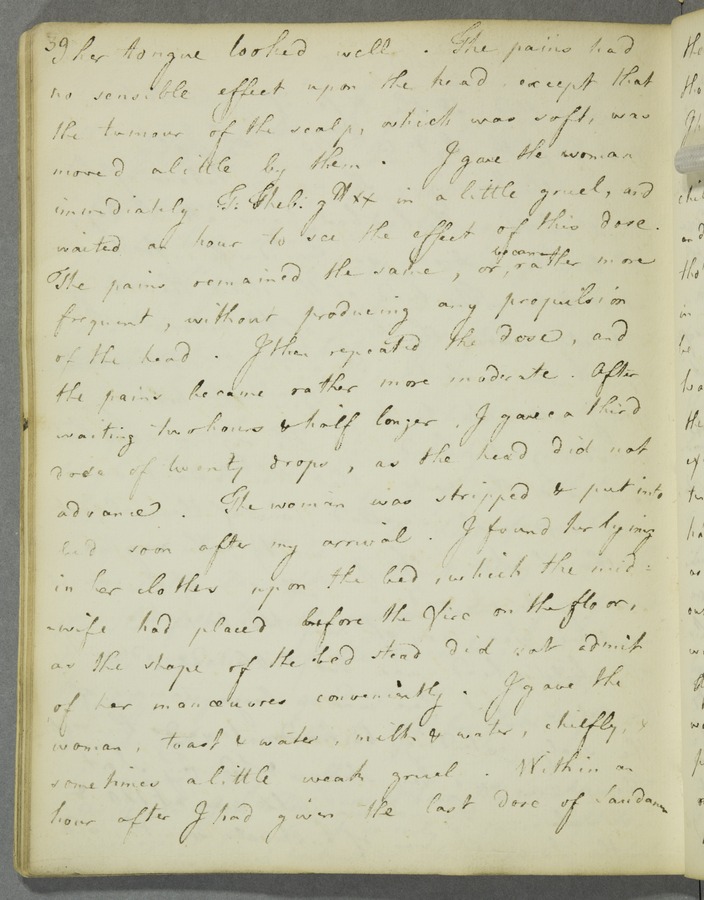 39 her tongue looked well. The pains had
no sensible effect upon the head except that
the tumour of the scalp, which was soft, was
moved a little by them. I gave the woman
immediately T: Theb: gtt xx in a little gruel, and
waited an hour to see the effect of this dose.
The pains remained the same, or, became rather more
frequent, without producing any propulsion
of the head. I then repeated the dose, and
the pains became rather more moderate. After
waiting two hours & half longer, I gave a third
dose of twenty drops, as the head did not
advance. The woman was stripped & put into
bed soon after my arrival. I found her lying
in her clothes upon the bed, which the mid=
-wife had placed before the fire on the floor,
as the shape of the bed stead did not admit
of her manœuvres conveniently. I gave the
woman, toast & water, milk & water, chiefly, &
sometimes a little weak gruel. Within an
hour after I had given the last dose of Laudanm